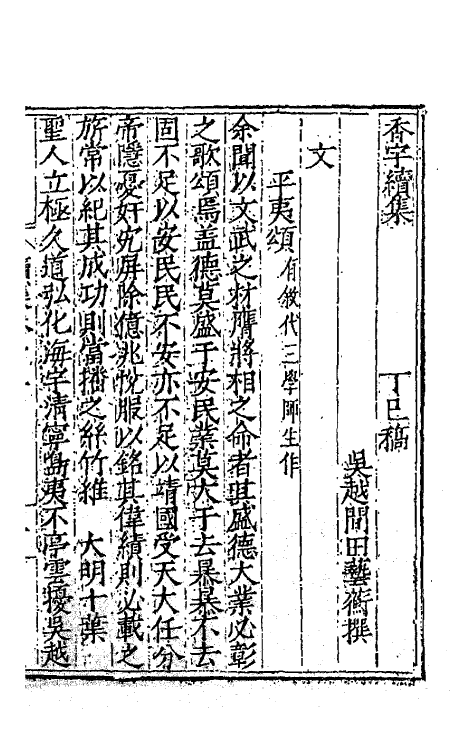 香宇續集　　丁巳稿
吳越閒田藝蘅撰
文
平夷頌有敘代三學師生作
余聞以文武之材膺將相之命者其盛德大業必彰
之歌頌焉盖德莫盛于安民業莫大于去暴暴不去
固不足以安民民不安亦不足以靖國受天大任分
帝隱憂奸宄屏除億兆悅服以銘其偉績則必載之
旂常以紀其成功則當播之絲竹維　大明十葉
聖人立極久道弘化海宇清寧島夷不享雲擾吳越